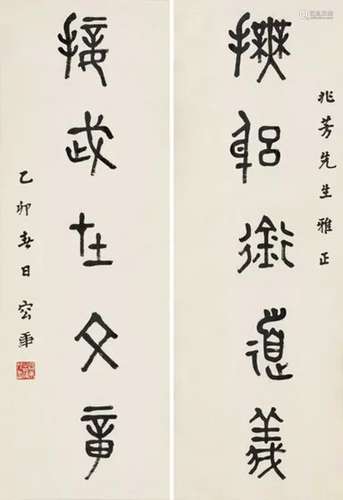 兆芳先生雅正
撫躳銜道義
接武在文章
乙卯春日